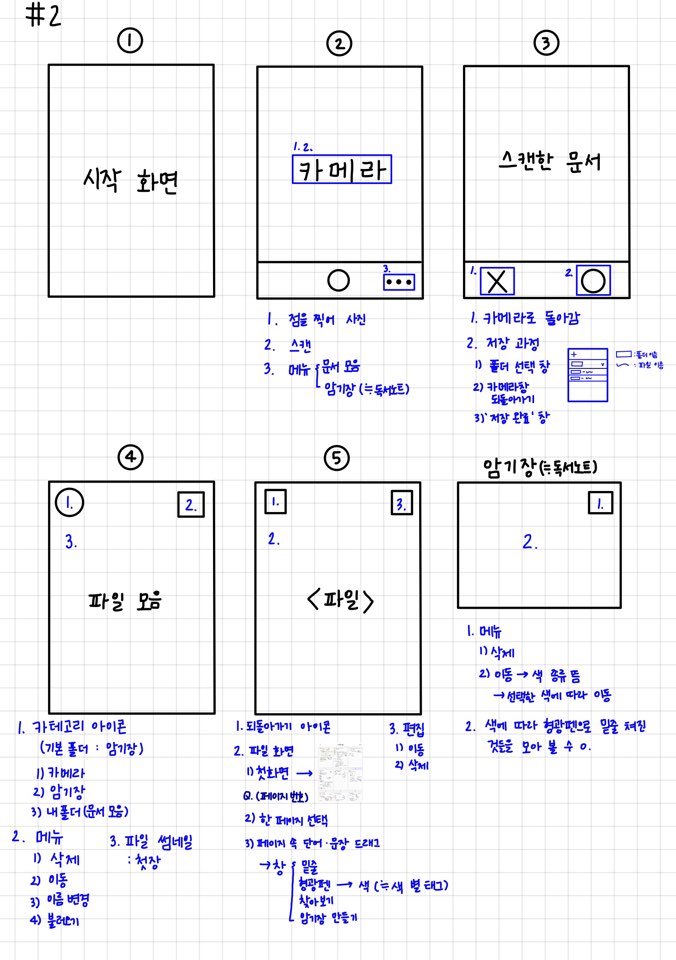 #2
①
시작 화면
②
1. 2.
카메라
3.
1. 점을 찍어 사진
2. 스캔
3. 메뉴 문서 모음
암기장 (≒독서노트)
③
스캔한 문서
1. X
2. ○
1. 카메라로 돌아감
2. 저장 과정
1) 폴더 선택 창
2) 카메라창
되돌아가기
3) '저장 완료' 창
+
: 폴더 이름
: 파일 이름
④
1.
2.
3.
파일 모음
1. 카테고리 아이콘
(기본 폴더 : 암기장)
1) 카메라
2) 암기장
3) 내 폴더 (문서 모음)
2. 메뉴
1) 삭제
2) 이동
3) 이름 변경
4) 불러오기
3. 파일 썸네일
: 첫장
⑤
1.
3.
2.
<파일>
1. 되돌아가기 아이콘
2. 파일 화면
1) 첫화면 →
Q. (페이지 번호)
2) 한 페이지 선택
3) 페이지 속 단어·문장 드래그
→ 창 밑줄
형광펜 → 색 (≒색 별 태그)
찾아보기
암기장 만들기
3. 편집
1) 이동
2) 삭제
암기장 (≒독서노트)
1.
2.
1. 메뉴
1) 삭제
2) 이동 → 색 종류 뜸
→ 선택한 색에 따라 이동
2. 색에 따라 형광펜으로 밑줄 쳐진
것들을 모아 볼 수 o.